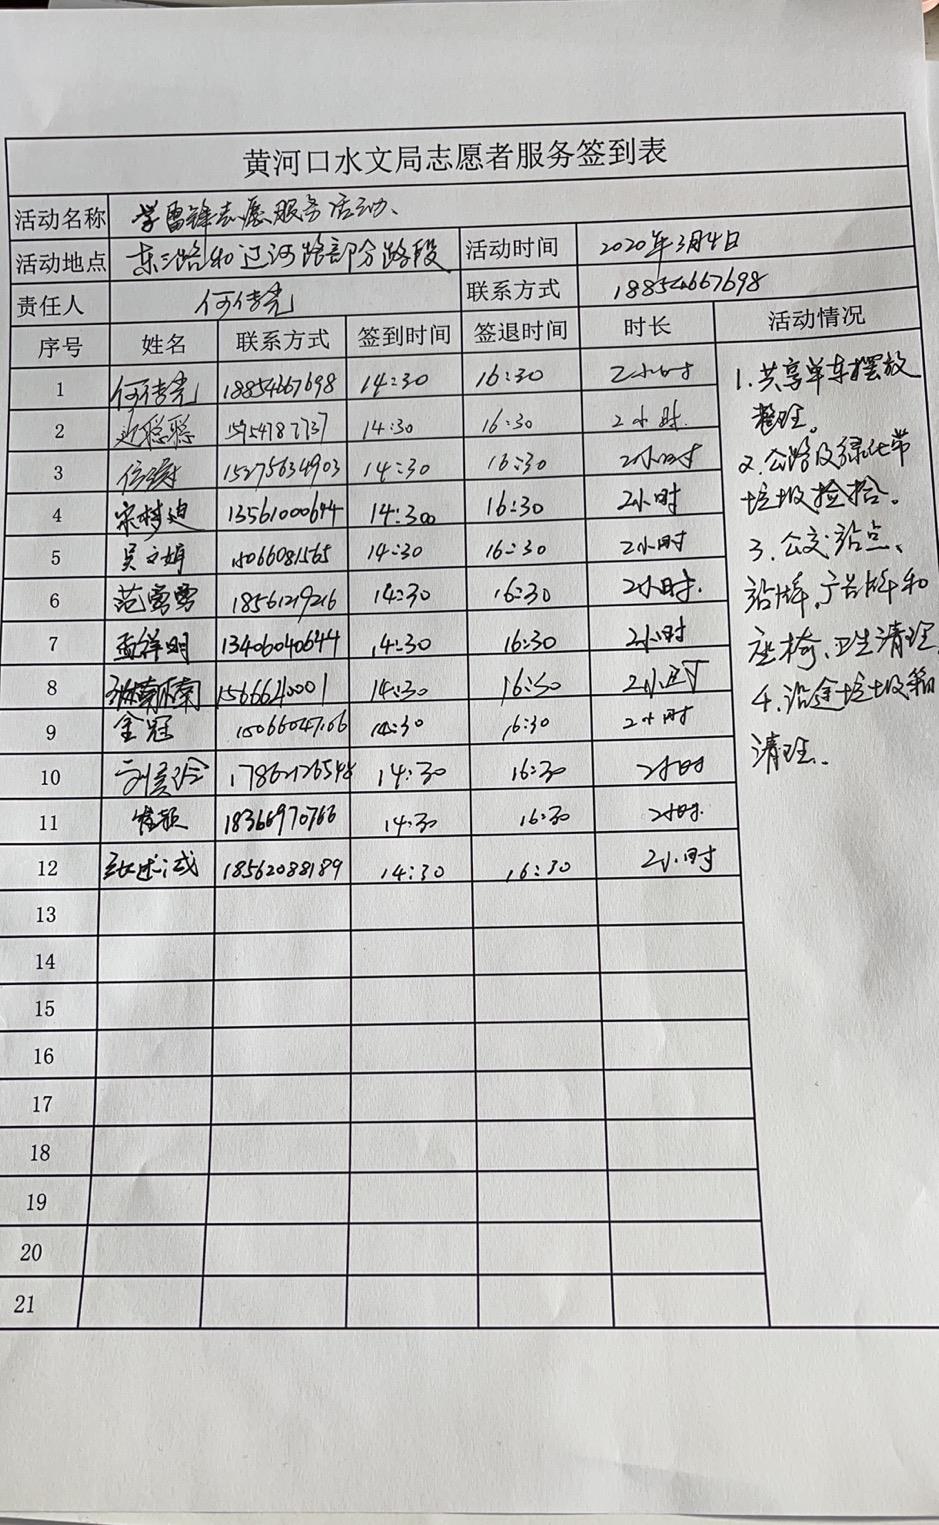 黄河口水文局志愿者服务签到表
活动名称 学雷锋志愿服务活动、
活动地点 东三路和辽河路部分路段 活动时间 2020年3月4日
责任人 何传亮 联系方式 18854667698
序号 姓名 联系方式 签到时间 签退时间 时长 活动情况
1 何传亮 18854667698 14:30 16:30 2小时
2 聪聪 14:30 16:30 2小时.
3 15275634903 14:30 16:30 2小时
4 宋梦迪 13561000644 14:30 16:30 2小时
5 吴文娟 15066081565 14:30 16:30 2小时
6 范雪雪 18561219216 14:30 16:30 2小时.
7 孟祥明 13406040644 14:30 16:30 2小时
8 张南南 1566640001 14:30 16:30 2小时
9 金冠 14:30 16:30 2小时
10 14:30 16:30 2小时
11 18366970766 14:30 16:30 2小时.
12 18562088189 14:30 16:30 2小时
13
14
15
16
17
18
19
20
21
1.共享单车摆放
整理。
2.公路及绿化带
垃圾捡拾。
3.公交站点、
站牌,广告牌和
座椅、卫生清理
4.沿途垃圾箱
清理.